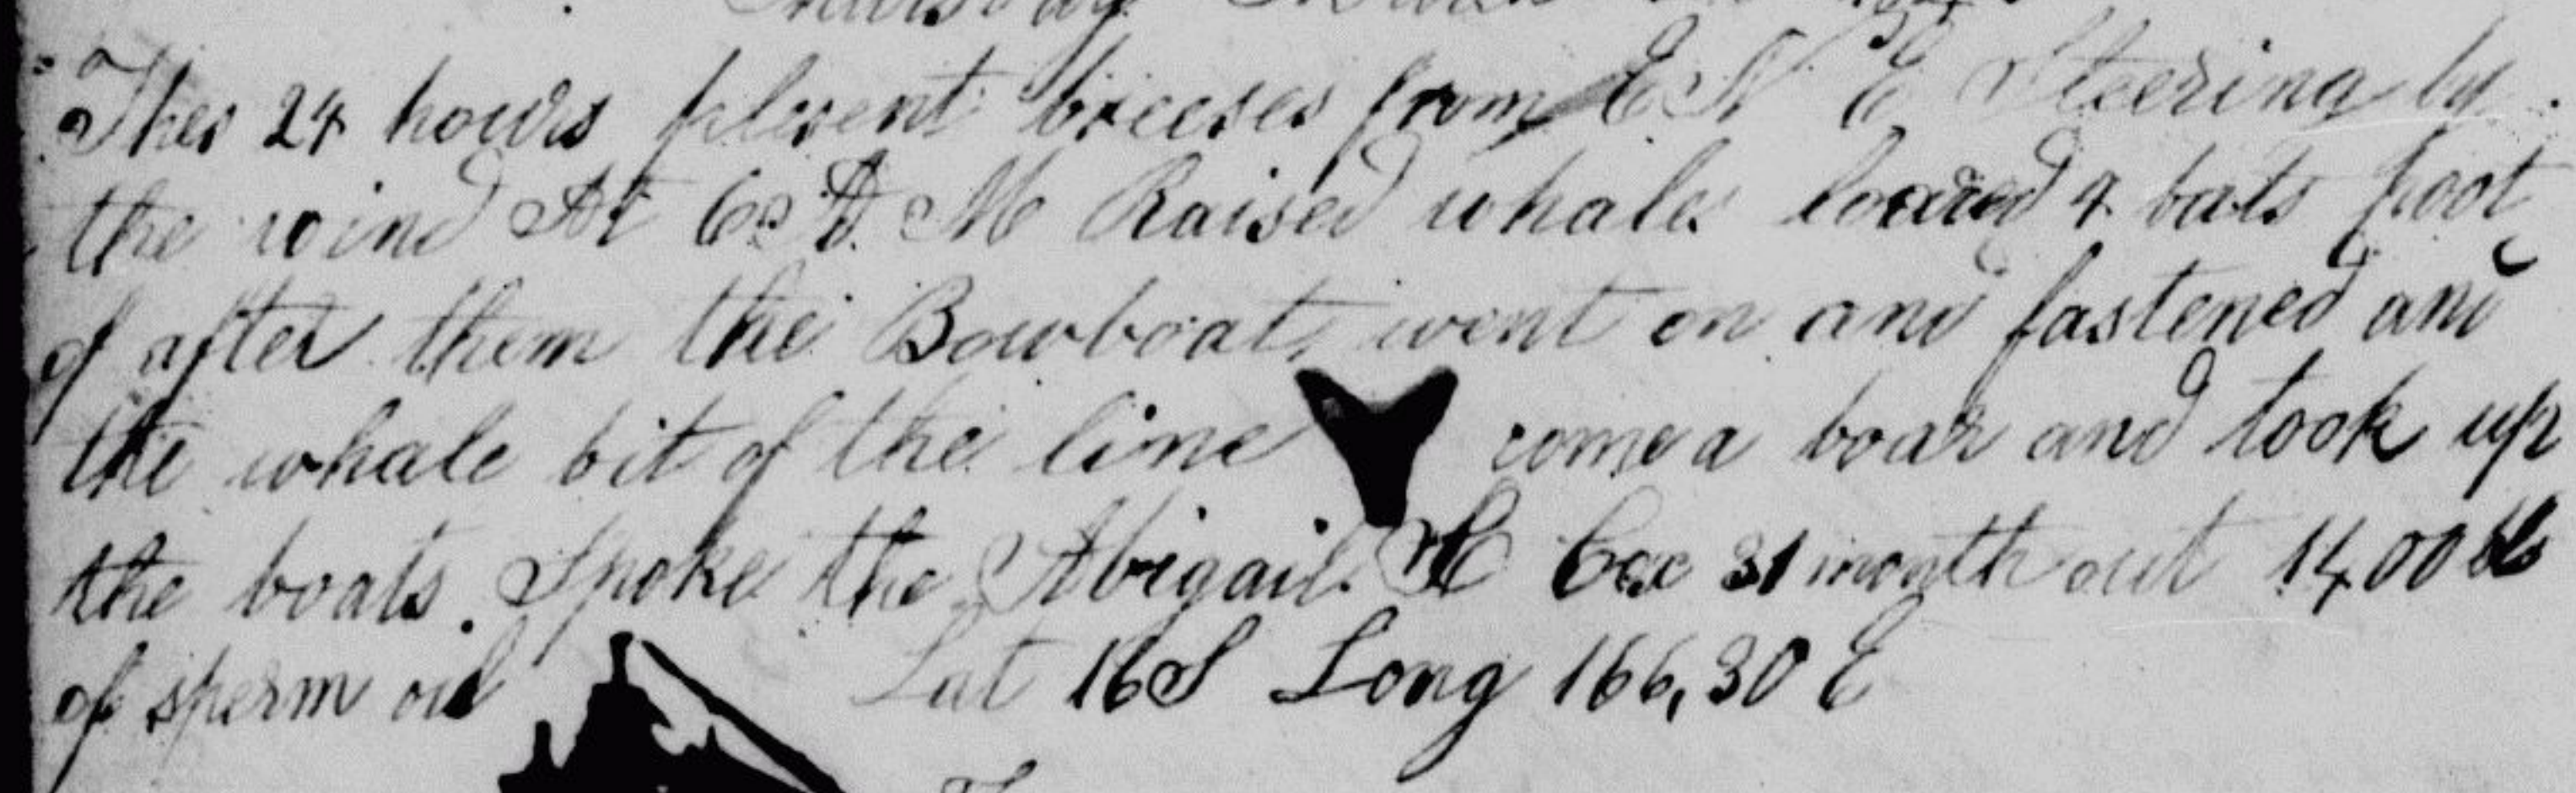 Thursday March
Thes 24 hours plesent breeses from E N E Steering by
the wind At 6 A M Raised whales loared 4 bats poot
of after them the Bowboat went on and fastened and
the whale bit of the line come a boar and took up
the boats. Spoke the Abigail 31 month out 14,00 bls
of sperm oil Lat 16 S Long 166,30 E